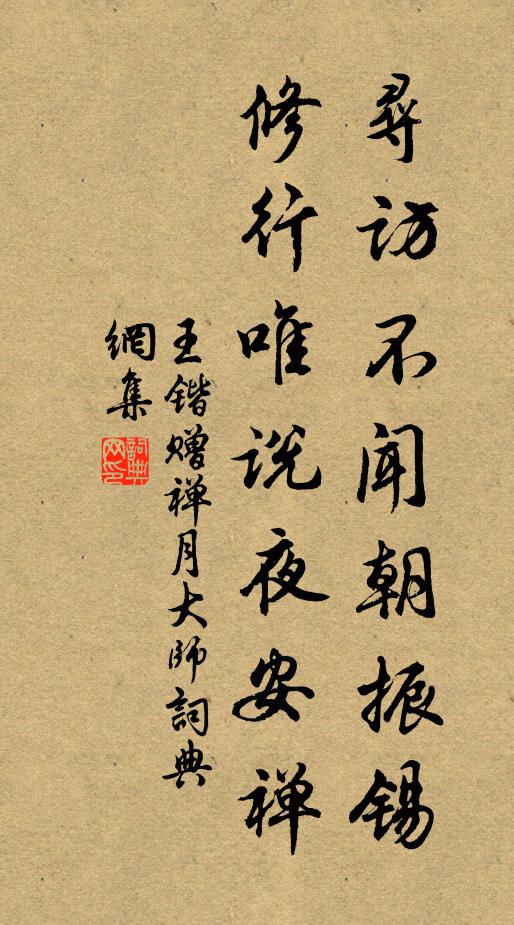 尋访不闻朝振锡
修行唯说夜安禅
王锴赠禅月大师詞典
網集
詞典网印